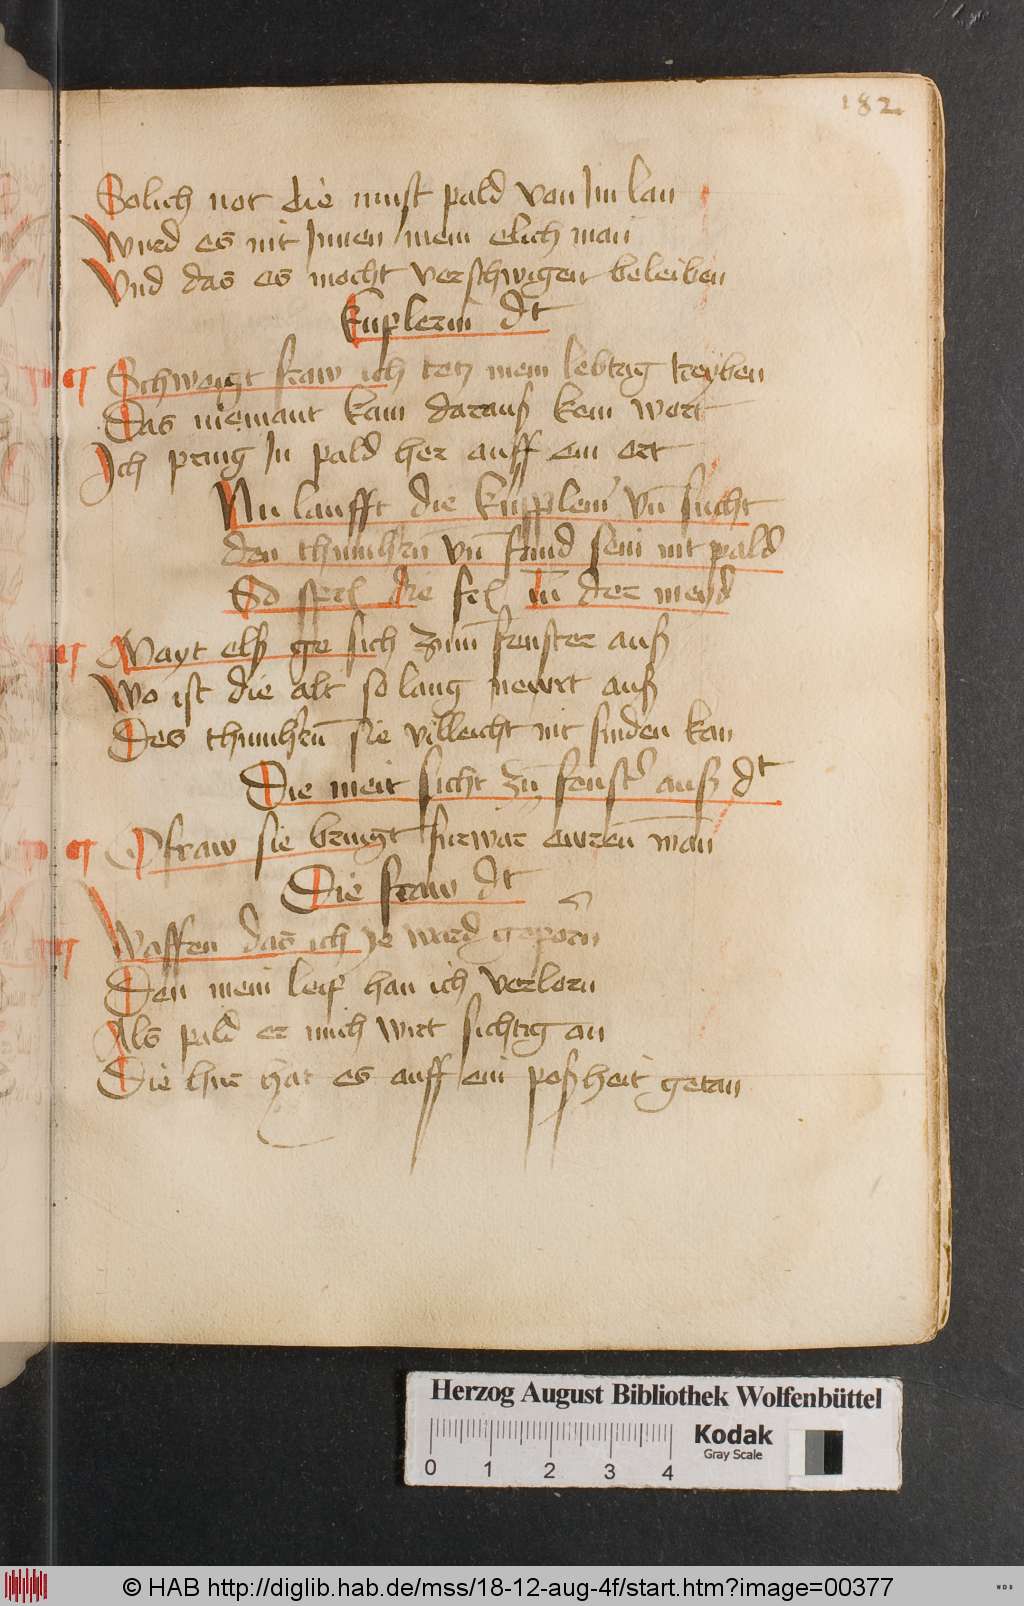 182
Solich not die must pald von Im lan
Wurd es nit Innen mein elich man
Und das es mocht verschwigen beleiben
Kuplerin dt
Schweigt fraw ich tetz mein lebtag treyben
Das niemant kam darauß kein wort
Ich pring In pald her auff ein ort
Nu laufft die Kupplerin vn sucht
den thumhern vn fand sein nit pald
So die der meid
Mayt elß ge sich zum fenster auß
Wo ist die alt so lang newrt auß
Des thumhern sie villeicht nit finden kan
Die meit sicht zu fenster auß dt
O fraw sie bringt furwar ewren man
Die fraw dt
Waffen das ich ye ward geporn
Den mein leip han ich verlorn
Als pald er mich wirt sichtig an
Die hur hat es auff ein poßheit getan
Herzog August Bibliothek Wolfenbüttel
0 1 2 3 4
Kodak
Gray Scale
© HAB http://diglib.hab.de/mss/18-12-aug-4f/start.htm?image=00377